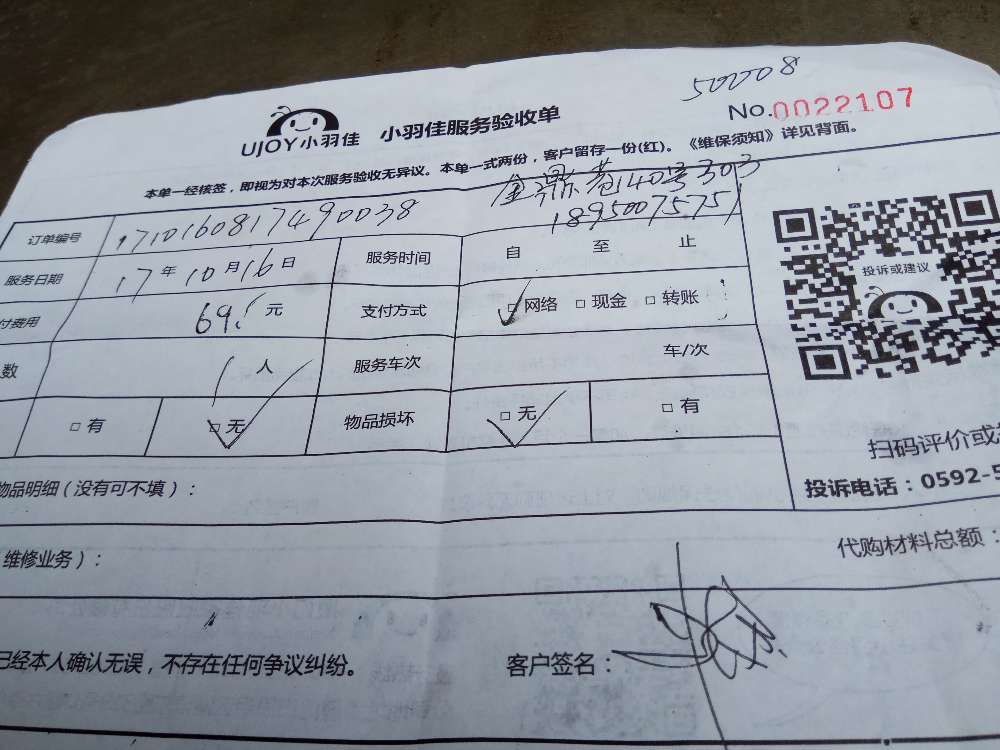 500008
UJOY小羽佳 小羽佳服务验收单 No.0022107
本单一经核签，即视为对本次服务验收无异议。本单一式两份，客户留存一份(红)。《维保须知》详见背面。
订单编号 1710160817490038 金鼎巷140号303
18950075751
服务日期 17年10月16日 服务时间 自 至 止
付费用 69. 元 支付方式 □网络 □现金 □转账
数 1人 服务车次 车/次
□有 □无 物品损坏 □无 □有
投诉或建议
扫码评价或
投诉电话：0592-5
物品明细（没有可不填）：
维修业务）：
代购材料总额：
已经本人确认无误，不存在任何争议纠纷。 客户签名：